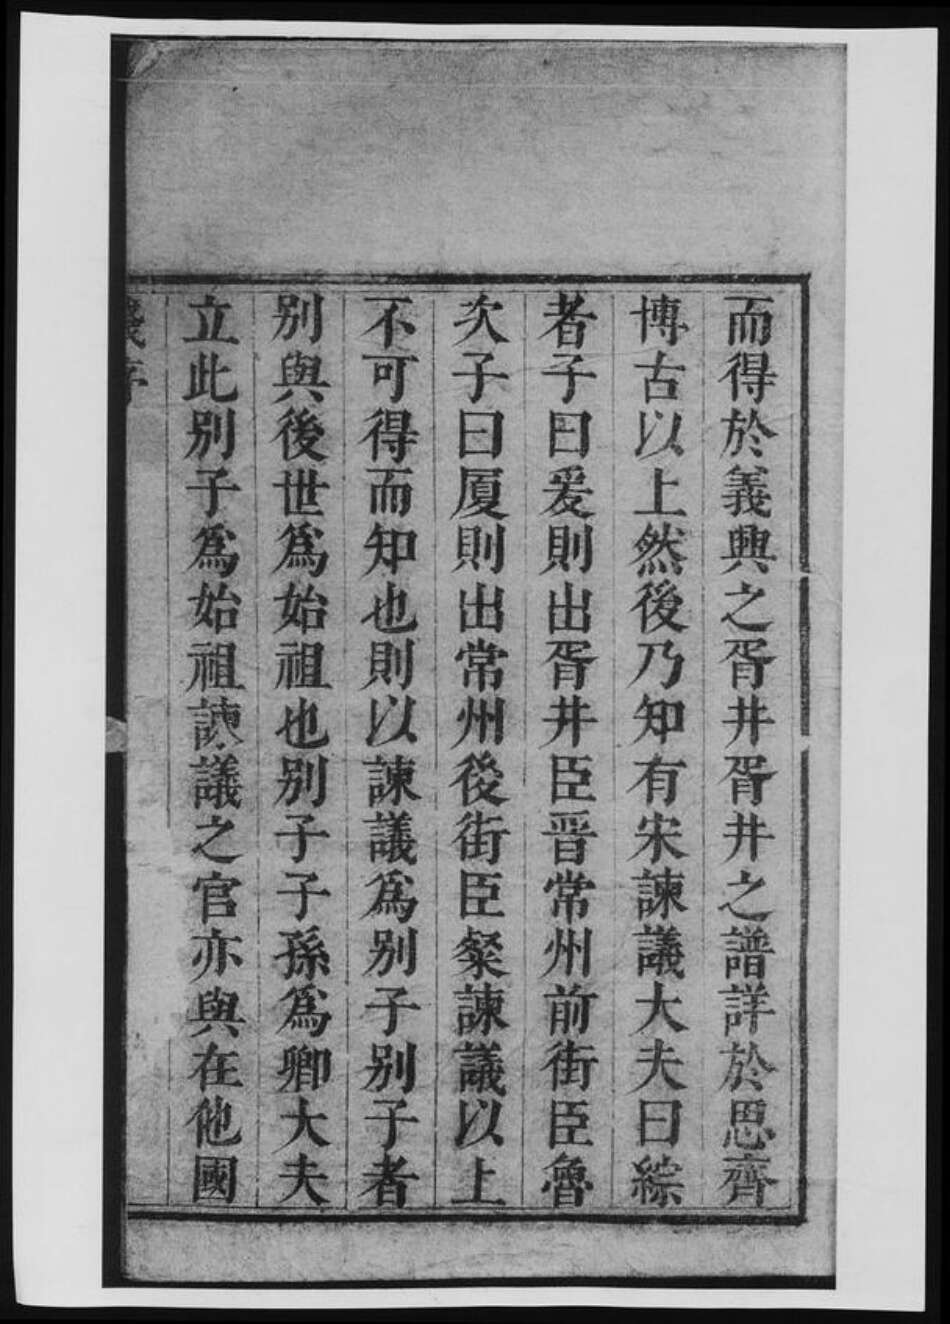 而得於義興之胥井胥井之譜詳於思齊
博古以上然後乃知有宋諫議大夫曰綜
者子曰爰則出胥井臣晋常州前街臣魯
次子曰厦則出常州後街臣粲諫議以上
不可得而知也則以諫議爲别子别子者
别與後世爲始祖也别子子孫爲卿大夫
立此别子爲始祖諫議之官亦與在他國
序